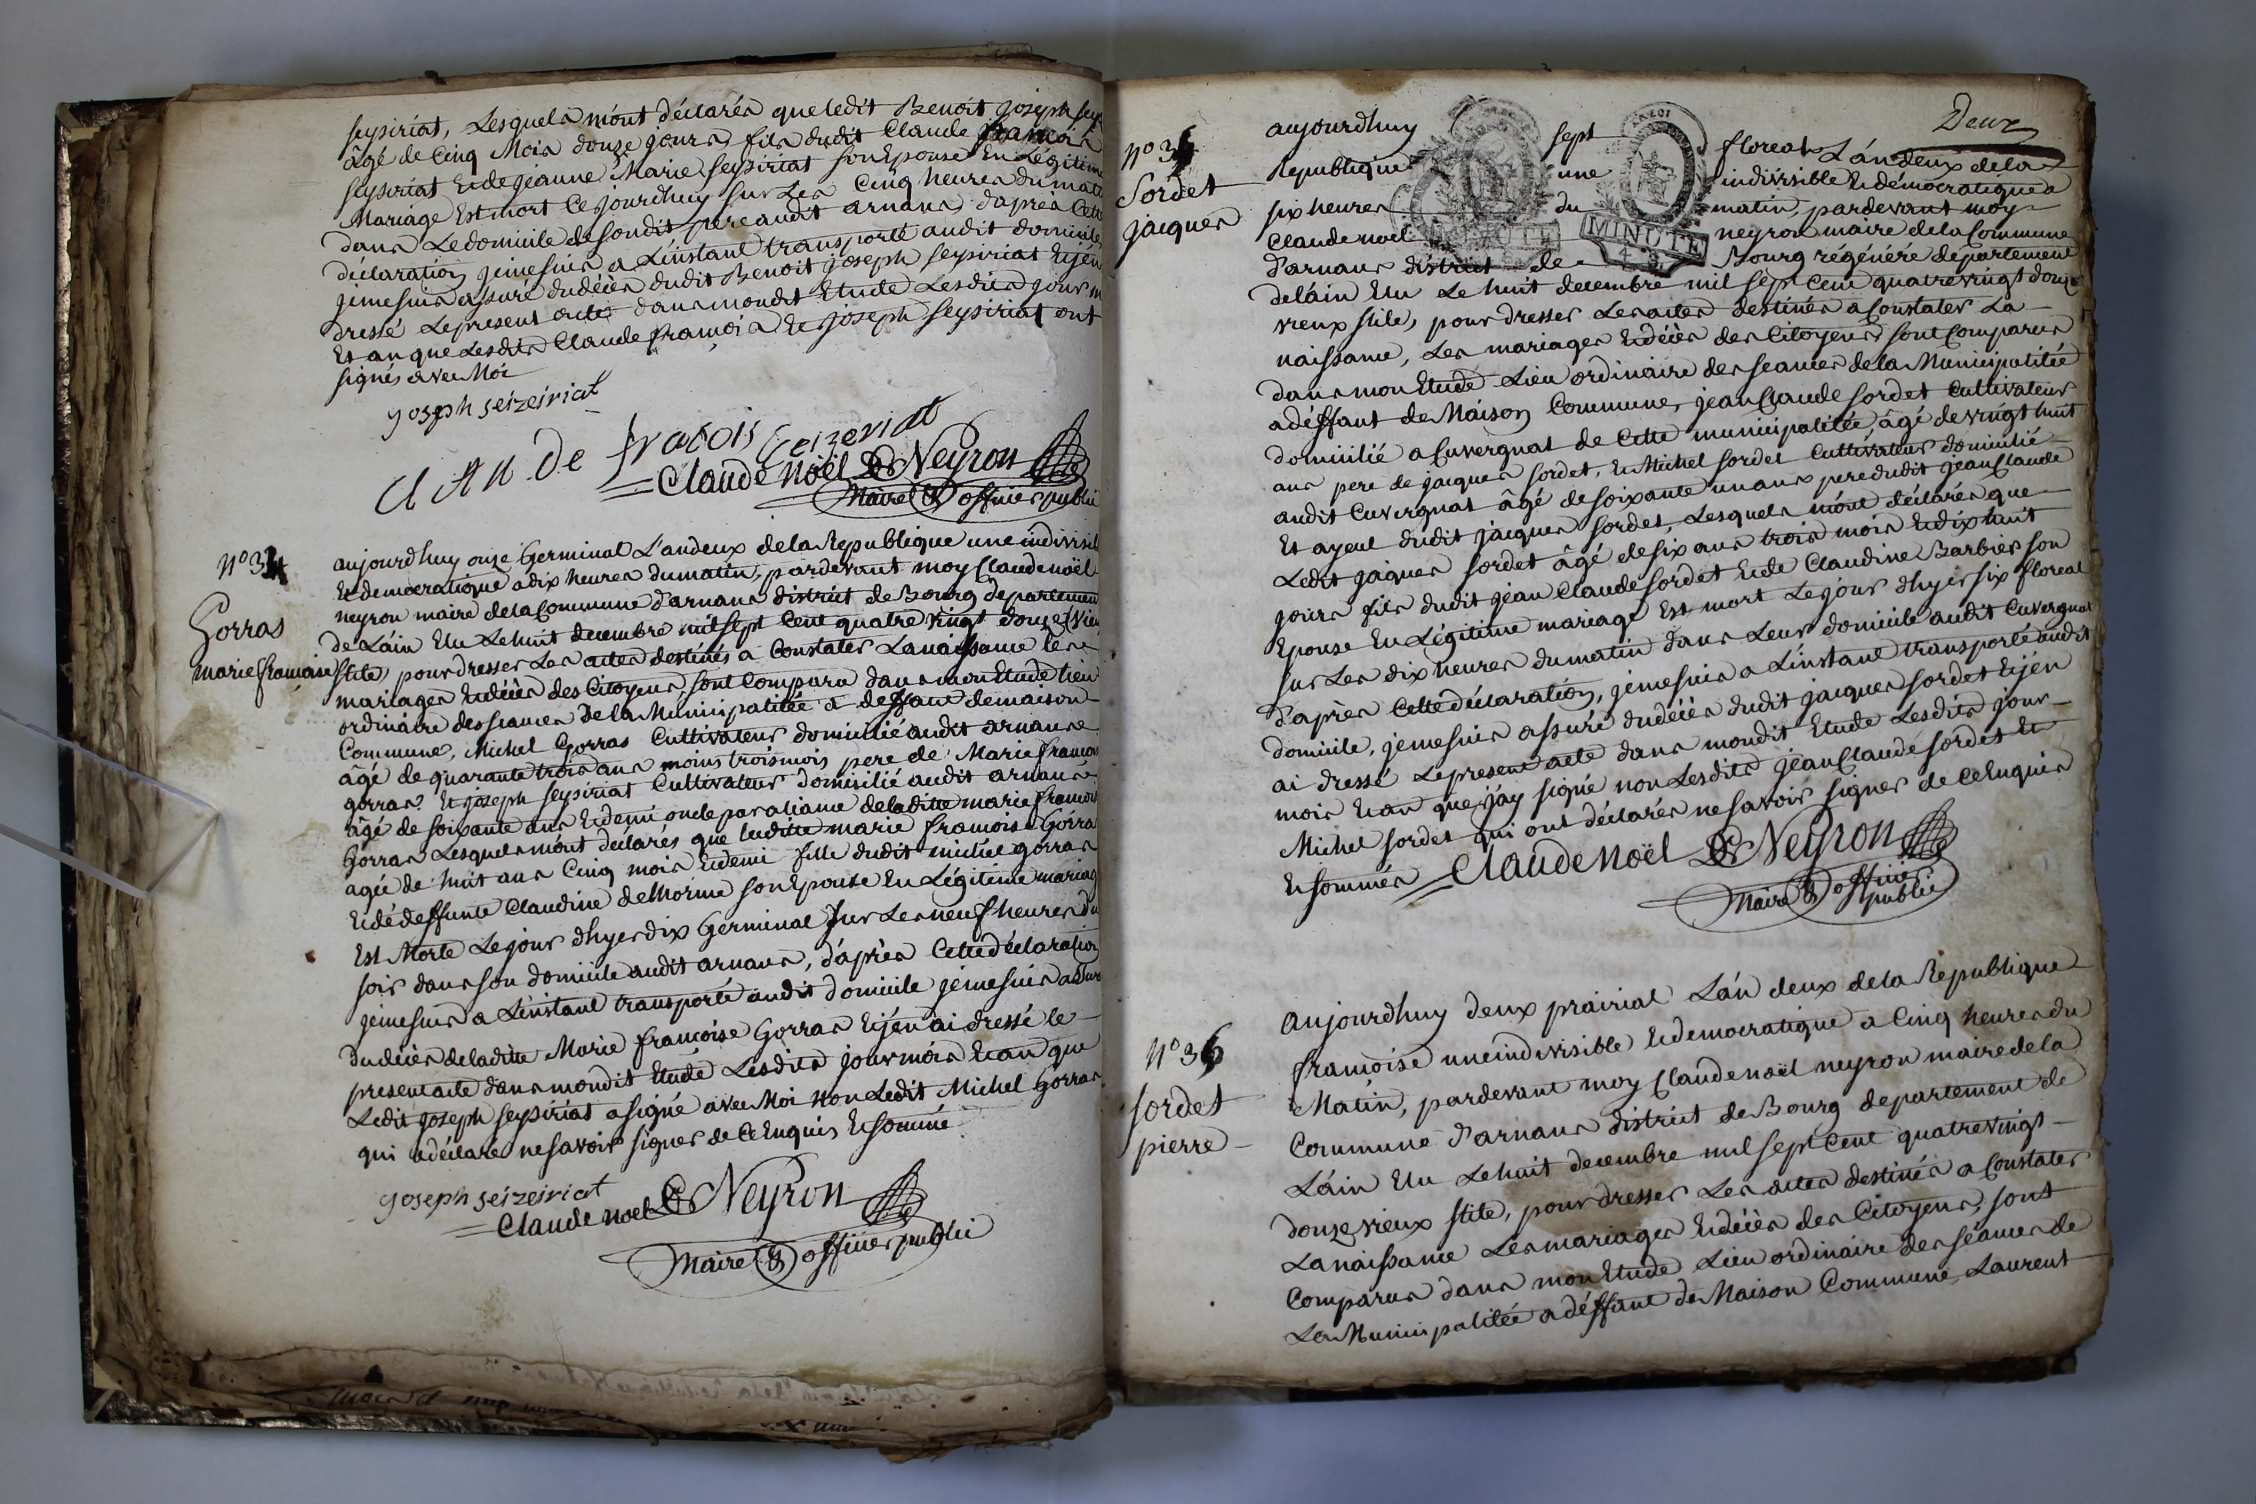 seysiriat, Lesquels m'ont déclarés que ledit Benoit joseph sey
âgé de Cinq Mois douze jours, fils dudit Claude françois
seysiriat Et de jeanne Marie seysiriat son Epouse En Légitime
Mariage Est mort Ce jourdhuy sur Les Cinq heures du mat
dans Le domicile de sondit pere audit arnans, d'après Cette
déclaration jeme suis a L'instant transporté audit domicile
jeme suis assuré du décès dudit Benoit joseph seysiriat Et j'en
dressé Le present acte dans mondit Etude Lesdits jour m
Et an que Lesdits Claude françois Et joseph seysiriat ont
signés avec Moi
joseph seizeiriat
Claude Noël Neyron
Maire & officier public
N° 34
Gorras
marie françoise
aujourdhuy onze Germinal L'an deux de la Republique une indivisib
Et democratique a dix heures du matin, pardevant moy Claude noël
neyron maire de la Commune d'arnans district de Bourg departement
de L'ain Elu Le huit decembre mil sept Cent quatre vingt douze (vieu
stile) pour dresser Les actes destinés a Constater La naissance les
mariages Et décès des Citoyens, sont Comparu dans mon Etude lieu
ordinaire des seances De la Municipalitée a deffaut de maison
Commune, Michel Gorras Cultivateur domicilié audit arnans
âgé de quarante trois ans moins trois mois pere de Marie françoise
gorras, Et joseph seysiriat Cultivateur domicilié audit arnans
âgé de soixante ans Et demi oncle par aliance de laditte marie françoise
Gorras Lesquels m'ont déclarés que laditte marie françoise Gorra
agée de huit ans Cinq mois Et demi fille dudit michel gorras
Et dé deffunte Claudine delhorme son Epouse En Légitime mariag
Est Morte Le jour d'hyer dix Germinal sur Les neuf heures du
soir dans son domicile audit arnans, d'après Cette déclaration
jeme suis a L'instant transporté audit domicile jeme suis assur
du décès de laditte Marie françoise Gorras Et j'en ai dressé le
present acte dans mondit Etude Lesdits jour mois Et an que
Ledit joseph seysiriat a signé avec Moi non Ledit Michel Gorras
qui a déclaré ne savoir signer de Ce Enquis Et sommé
joseph seizeiriat
Claude noël Neyron
Maire & officier public
Deux
N° 35
Sordet
jacques
aujourdhuy sept floreal L'an deux de la
Republique une indivisible Et démocratique a
six heures du matin, pardevant moy
Claude noël neyron maire de la Commune
d'arnans district de Bourg régénéré departement
MINUTE
de l'ain Elu Le huit decembre mil sept Cent quatre vingt douze
vieux stile, pour dresser Les actes destinés a Constater La
naissance, Les mariages Et décès des Citoyens sont Comparus
dans mon Etude Lieu ordinaire des seances de la Municipalitée
a déffaut de Maison Commune, jean Claude sordet Cultivateur
domicilié a Cuvergnat de Cette municipalitée, âgé de vingt huit
ans pere de jacques sordet, Et Michel sordet Cultivateur domicilié
audit Cuvergnat âgé de soixante un ans pere dudit jean Claude
Et ayeul dudit jacques sordet, Lesquels m'ont déclarés que
Ledit jacques sordet âgé de six ans trois mois Et dix huit
jours fils dudit jean Claude sordet Et de Claudine Barbier son
Epouse En Légitime mariage Est mort Le jour d'hyer six floreal
sur Les dix heures du matin dans Leur domicile audit Cuvergnat
d'après Cette déclaration, jeme suis a L'instant transporté audit
domicile, jeme suis assuré du décès dudit jacques sordet Et j'en
ai dressé Le present acte dans mondit Etude Lesdits jour
mois Et an que j'ay signé non Lesdits jean Claude sordet Et
Michel sordet qui ont déclarés ne savoir signer de Ce Enquis
Et sommés Claude Noël Neyron
Maire & officier
public
N° 36
sordet
pierre
aujourdhuy deux prairial L'an deux de la Republique
françoise une indivisible Et democratique a Cinq heures du
Matin, pardevant moy Claude noël neyron maire de la
Commune d'arnans district de Bourg departement de
L'ain Elu Le huit decembre mil sept Cent quatre vingt
douze vieux stile, pour dresser Les actes destinés a Constater
La naissance Les mariages Et décès des Citoyens, sont
Comparus dans mon Etude Lieu ordinaire des séances de
La Municipalitée a déffaut de Maison Commune, Laurent